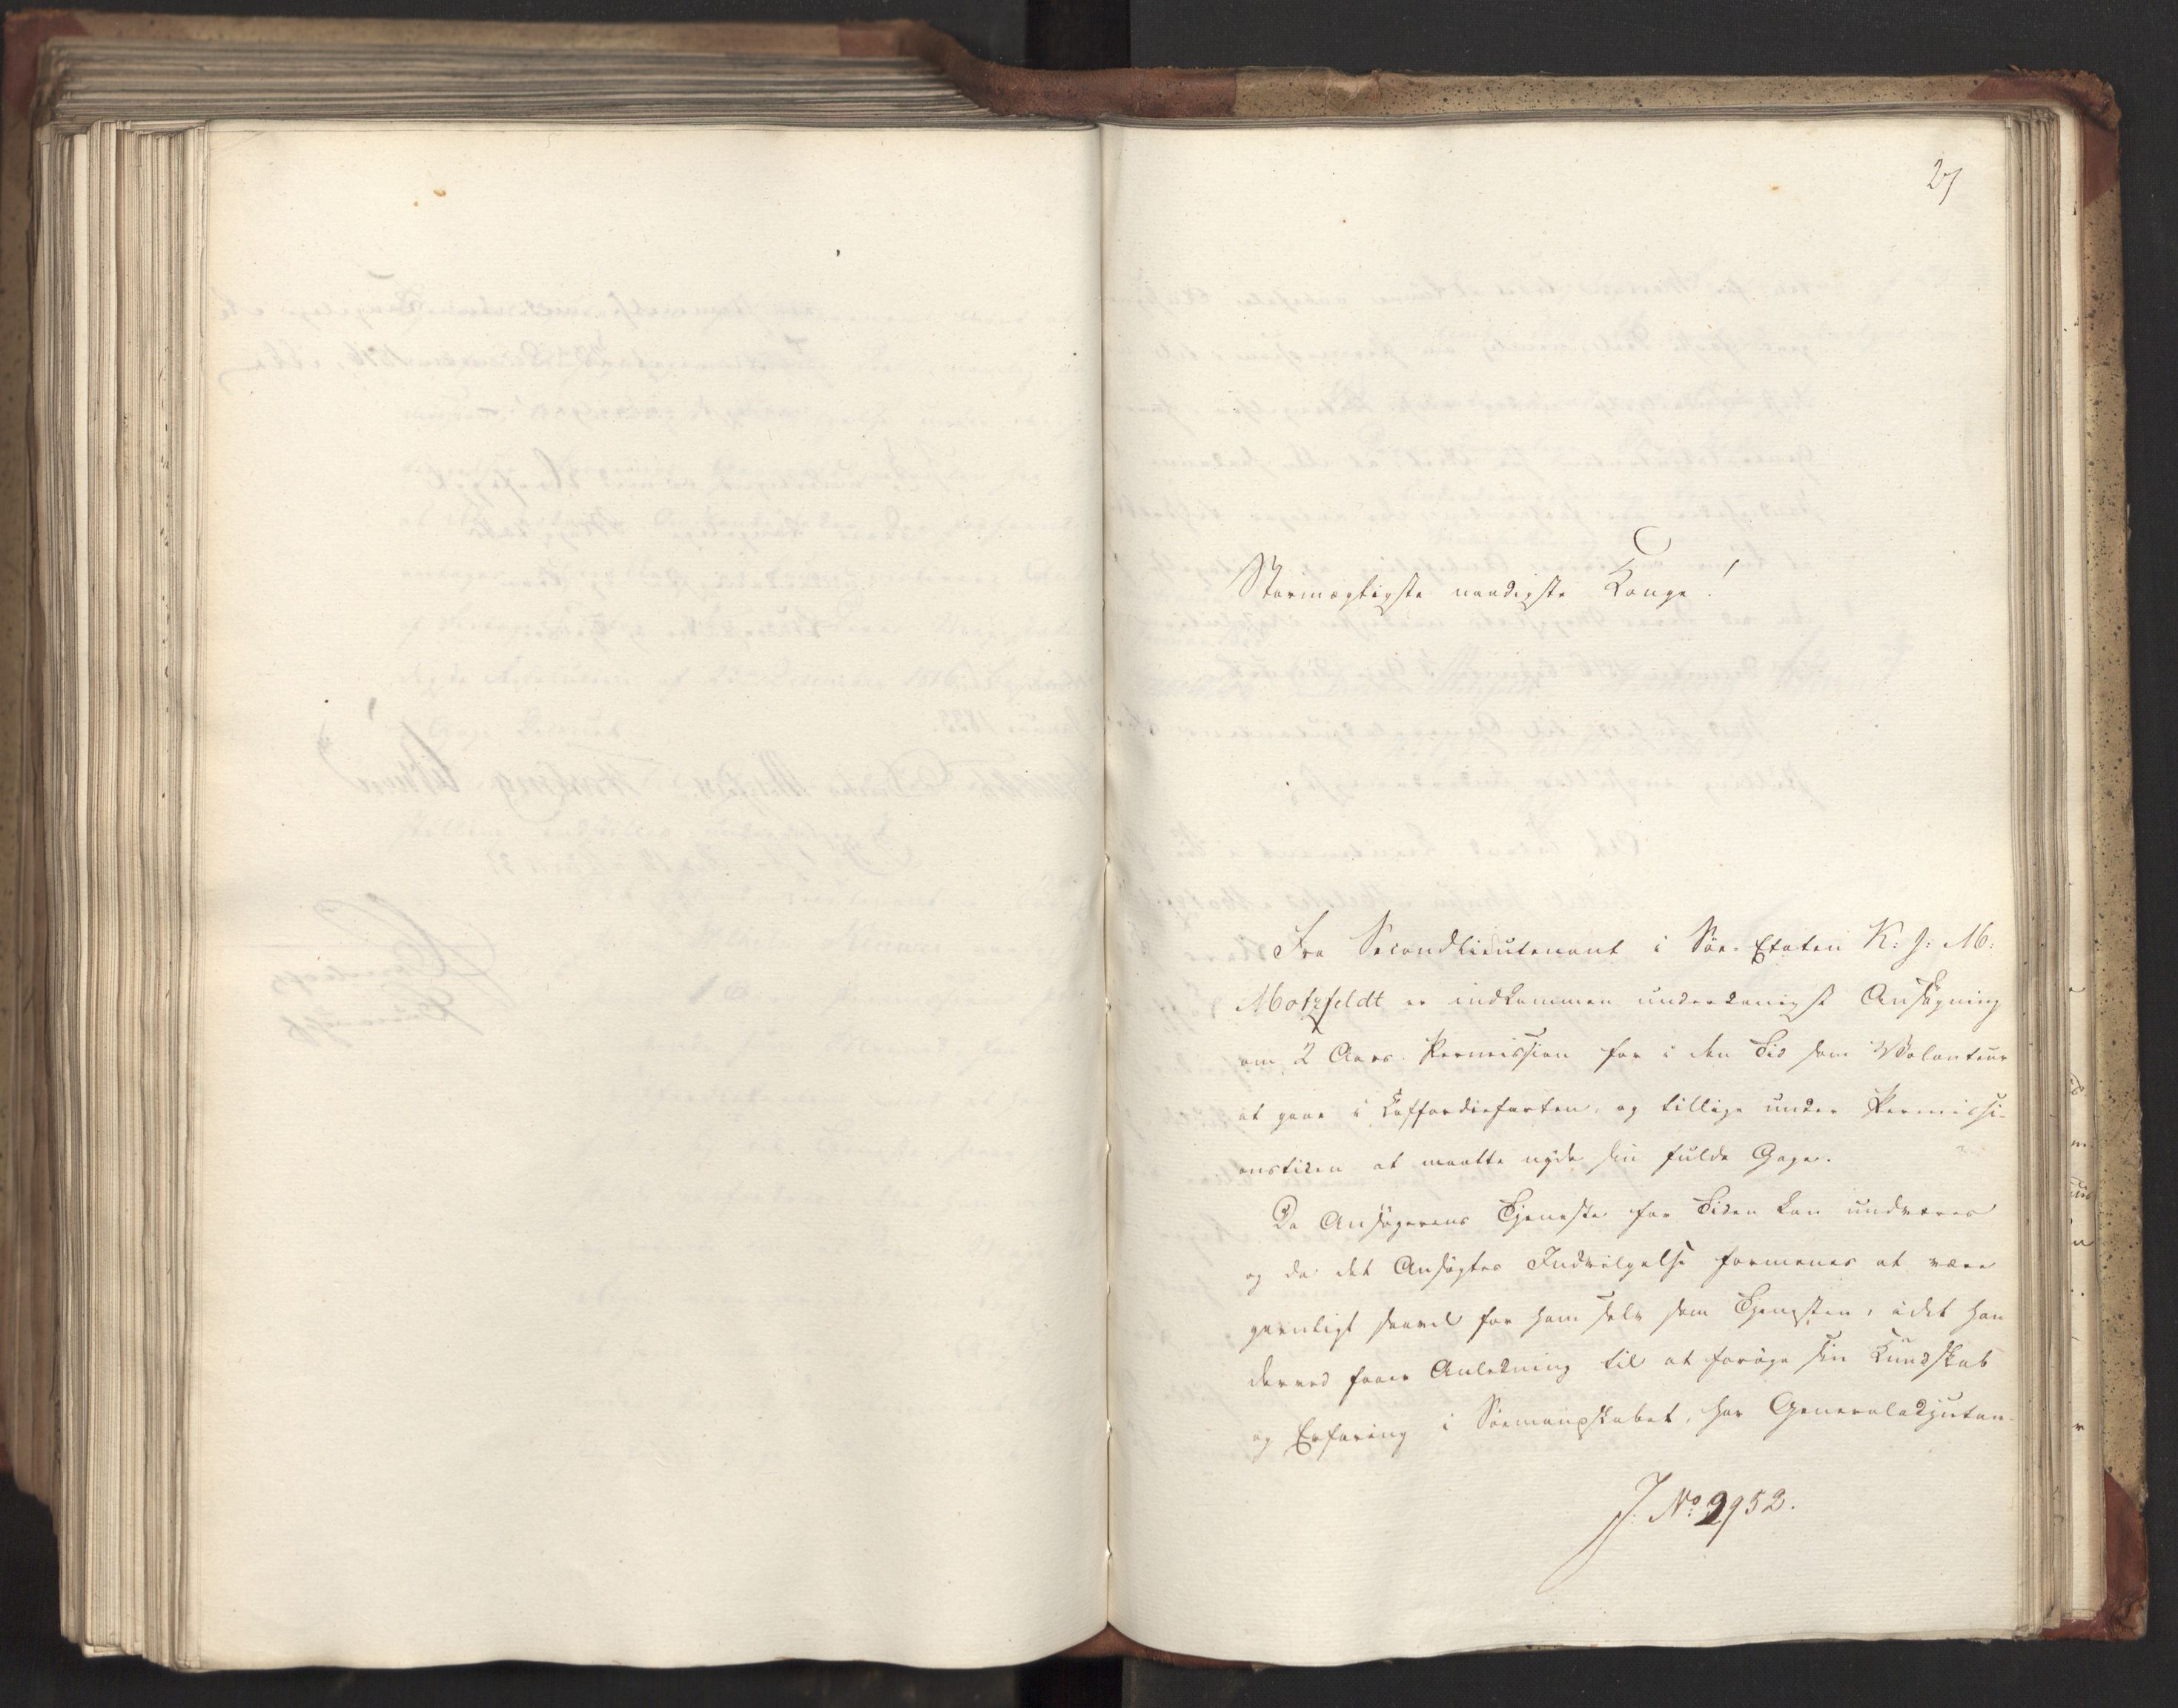 27
Stormægtigste naadigste Konge!
Fra Secondlieutenant i Søe-Etaten K: J: M:
Motzfeldt er indkommen underdanigst Ansøgning
om 2 Aars Permission for i den Tid som Volonteur
at gaae i Koffardiefarten, og tillige under Permissi-
onstiden at maatte nyde sin fulde Gage.
Da Ansøgerens Tjeneste for Tiden kan undværes
og da det Ansøgtes Indvilgelse formenes at være
gavnligt saavel for ham selv som Tjenesten, idet han
derved faaer Anledning til at forøge sin Kundskab
og Erfaring i Sømandskabet, har Generaladjutan-
J. No 2952.